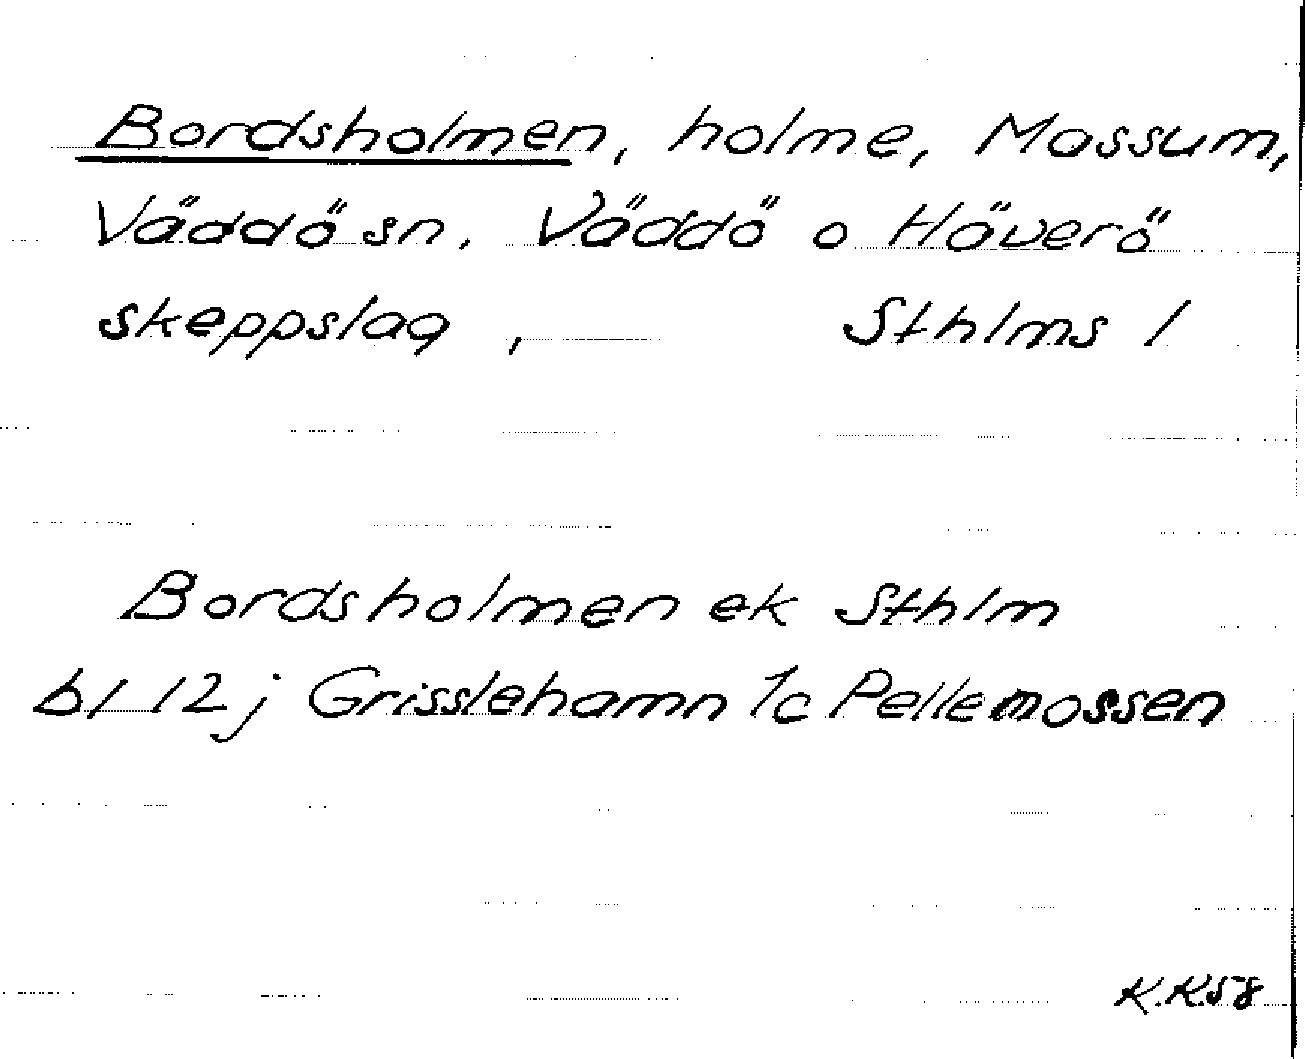 Bordsholmen, holme, Massum,
Väddö sn. Väddö o Häverö
skeppslag, Sthlms l
Bordsholmen ek Sthlm
bl 12j Grisslehamn 1c Pellemossen
K.K58